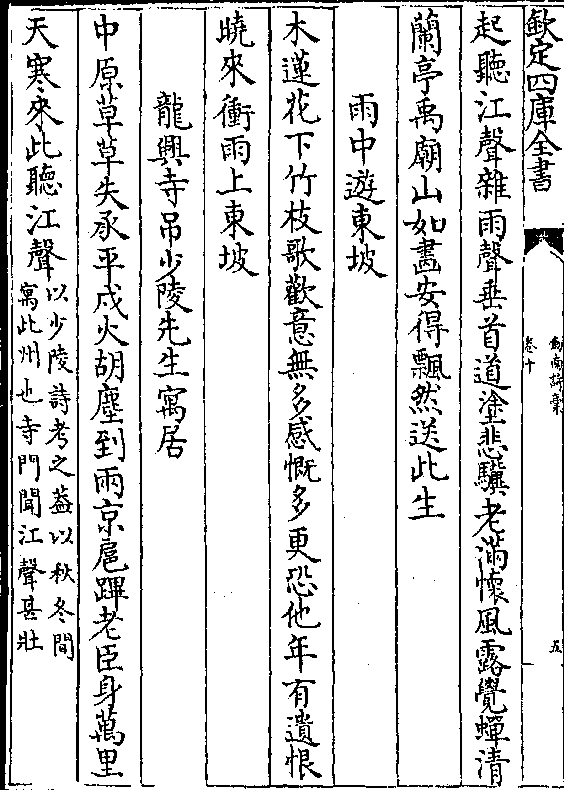 欽定四庫全書
劍南詩稾
卷十
五
起聽江聲雜雨聲垂首道塗悲驥老滿懷風露覺蟬清
蘭亭禹廟山如畵安得飄然送此生
雨中遊東坡
木蓮花下竹枝歌歡意無多感慨多更恐他年有遺恨
曉來衝雨上東坡
龍興寺吊少陵先生寓居
中原草草失承平戍火胡塵到兩京扈蹕老臣身萬里
天寒來此聽江聲以少陵詩考之葢以秋冬間
寓此州也寺門聞江聲甚壯